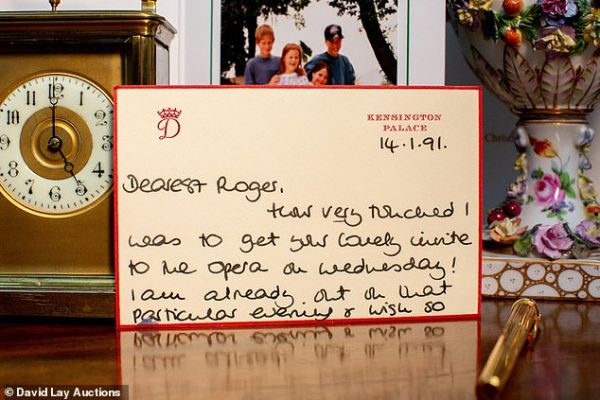 D
KENSINGTON
PALACE
14.1.91.
Dearest Roger,
How very touched I
was to get your lovely invite
to the opera on Wednesday!
I am already out on that
particular evening & wish so
12
11
1
10
2
9
3
8
4
7
5
6
© David Lay Auctions